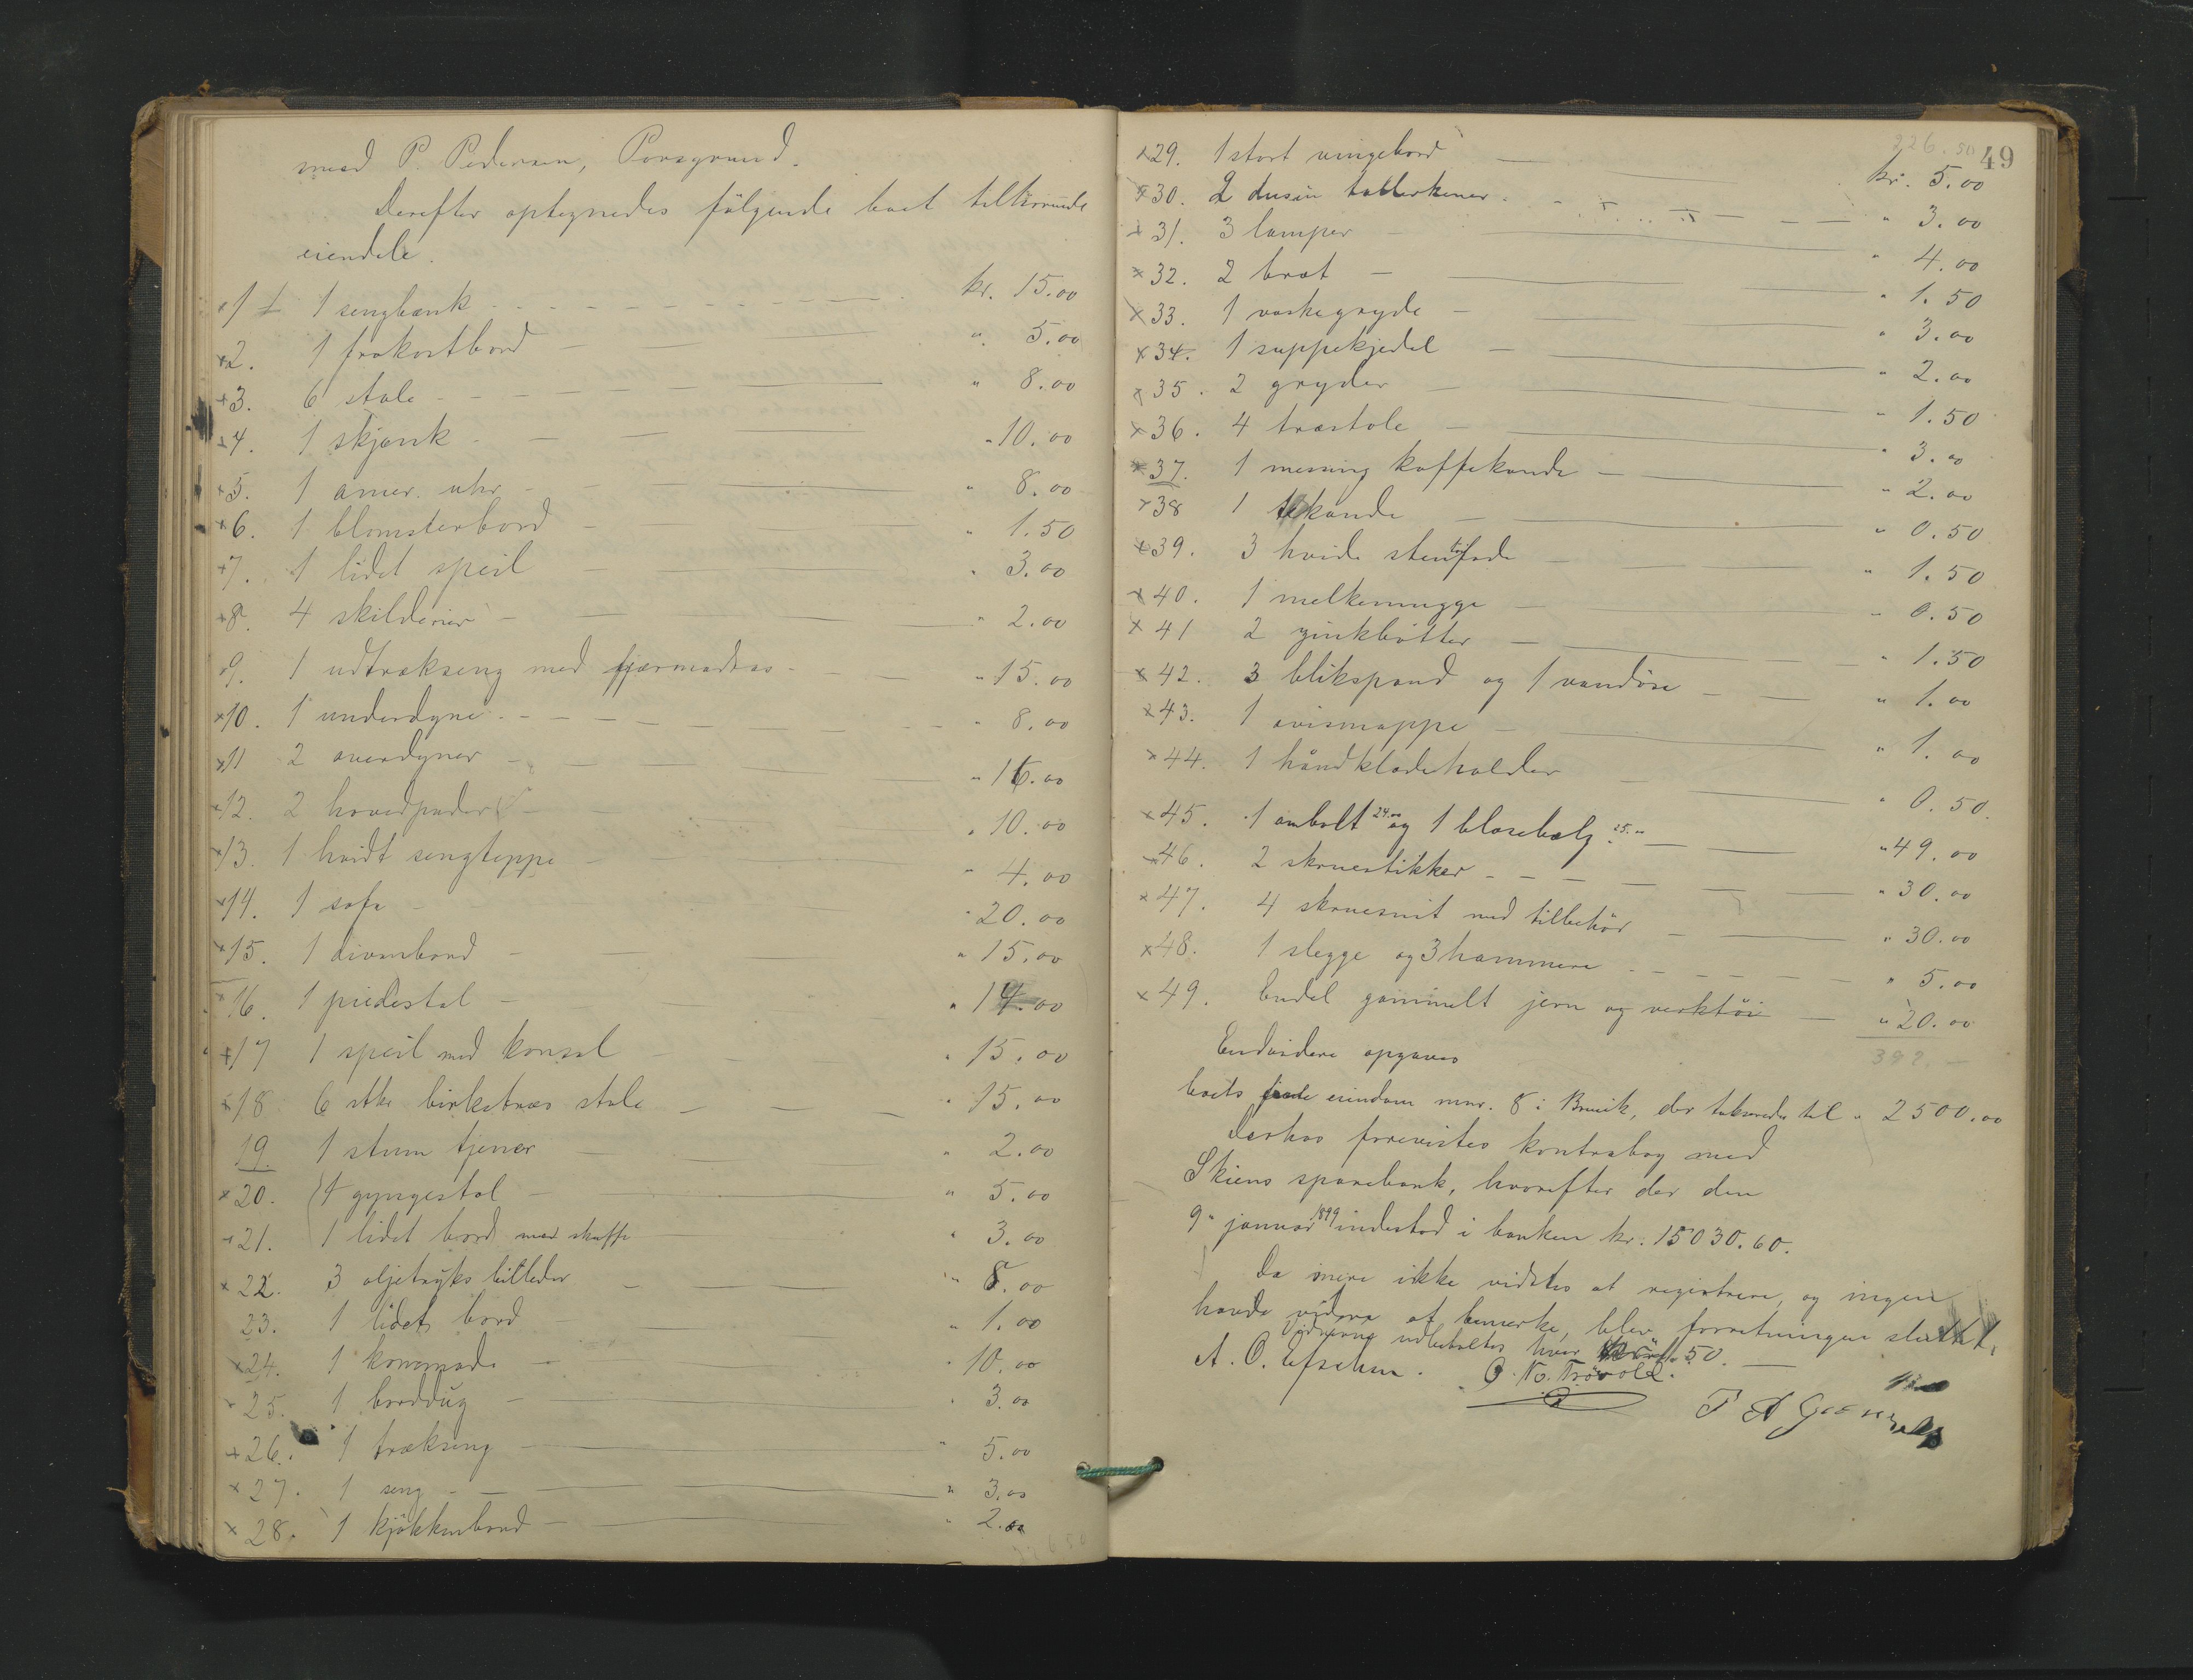 med P. Pedersen, Porsgrund.
Derefter optegnedes følgende boet tilhørende
eiendele.
x1 1 sengbænk kr. 15.00
x2. 1 frokostbord " 5.00
x3. 6 stole " 8.00
x4. 1 skjænk " 10.00
x5. 1 amer. uhr " 8.00
x6. 1 blomsterbord " 1.50
x7. 1 lidet speil " 3.00
x8. 4 skilderier " 2.00
9. 1 udtrækseng med fjærmadras " 15.00
x10. 1 underdyne " 8.00
x11 2 overdyner " 16.00
x12. 2 hovedpuder " 10.00
x13. 1 hvidt sengteppe " 4.00
x14. 1 sofa " 20.00
x15. 1 divanbord " 15.00
x16. 1 piedestal " 14.00
x17 1 speil med konsol " 15.00
x18 6 stkr birketræs stole " 15.00
19. 1 stum tjener " 2.00
x20. 1 gyngestol " 5.00
x21. 1 lidet bord med skuffe " 3.00
x22. 3 oljetryks billeder " 8.00
23. 1 lidet bord " 1.00
x24. 1 kommode " 10.00
x25. 1 borddug " 3.00
x26. 1 trækseng " 5.00
x27. 1 seng " 3.00
x28. 1 kjøkkenbord " 2.00
226.50
49
x29. 1 stort vingebord kr. 5.00
x30. 2 dusin tallerkener " 3.00
x31. 3 lamper " 4.00
x32. 2 bræt " 1.50
x33. 1 vaskegryde " 3.00
x34. 1 suppekjedel " 2.00
x35. 2 gryder " 1.50
x36. 4 træstole " 3.00
x37. 1 messing kaffekande " 2.00
x38 1 tekande " 0.50
x39. 3 hvide stentøifade " 1.50
x40. 1 melkemugge " 0.50
x41 2 zinkbøtter " 1.50
x42. 3 blikspand og 1 vandøse " 1.00
x43. 1 avismappe " 1.00
x44. 1 håndklædeholder " 0.50
x45. 1 ambolt 24.00 og 1 blæsebælg 25.00 " 49.00
x46. 2 skruestikker " 30.00
x47. 4 skruesnit med tilbehør " 30.00
x48. 1 slegge og 3 hammere " 5.00
x49. Endel gammelt jern og verktøi " 20.00
Endvidere opgaves
boets eiendom mnr. 8 i Brevik, der takseredes til " 2500.00
Derhos forevistes kontrabog med
Skiens sparebank, hvorefter der den
9de januar 1899 indestod i banken kr. 15030.60.
Da mere ikke vidstes at registrere, og ingen
havde videre at bemærke, blev forretningen sluttet.
Vidnerne udbetaltes hver 50.
A. O.
O. N.
P A